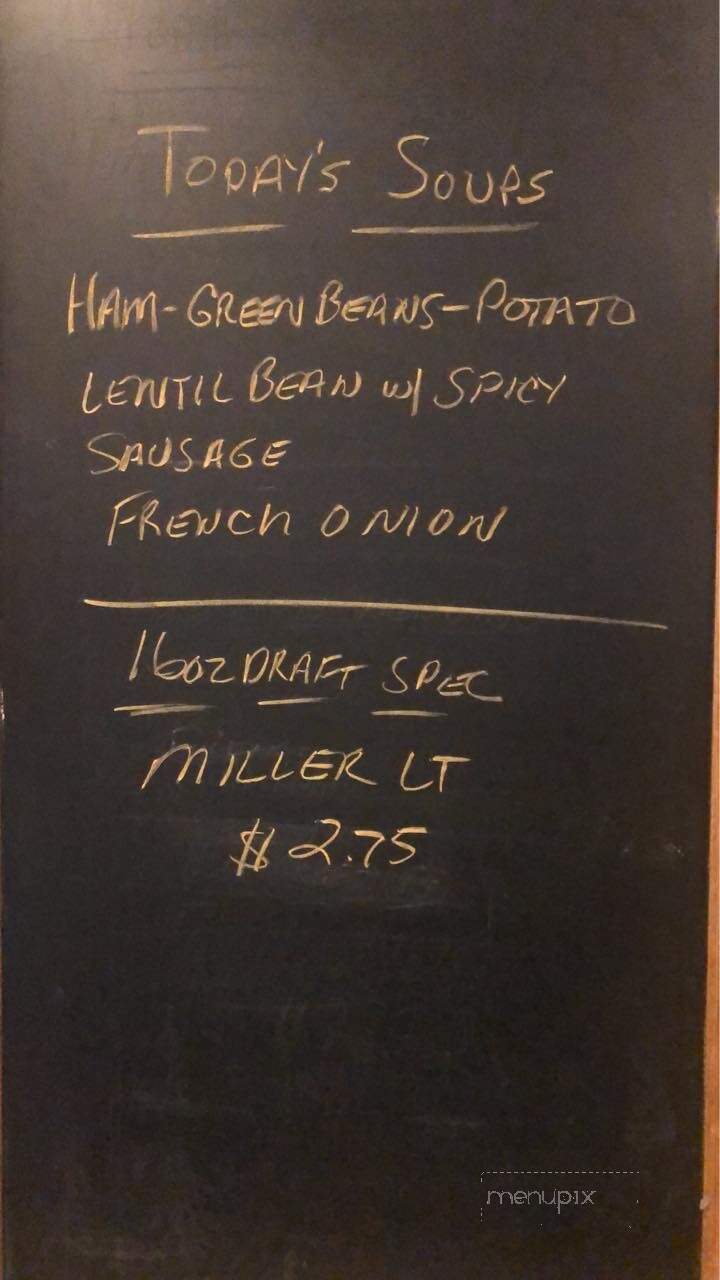 TODAY'S SOUPS
HAM-GREEN BEANS-POTATO
LENTIL BEAN w/ SPICY
SAUSAGE
FRENCH ONION
16OZ DRAFT SPEC
MILLER LT
$2.75
menupix